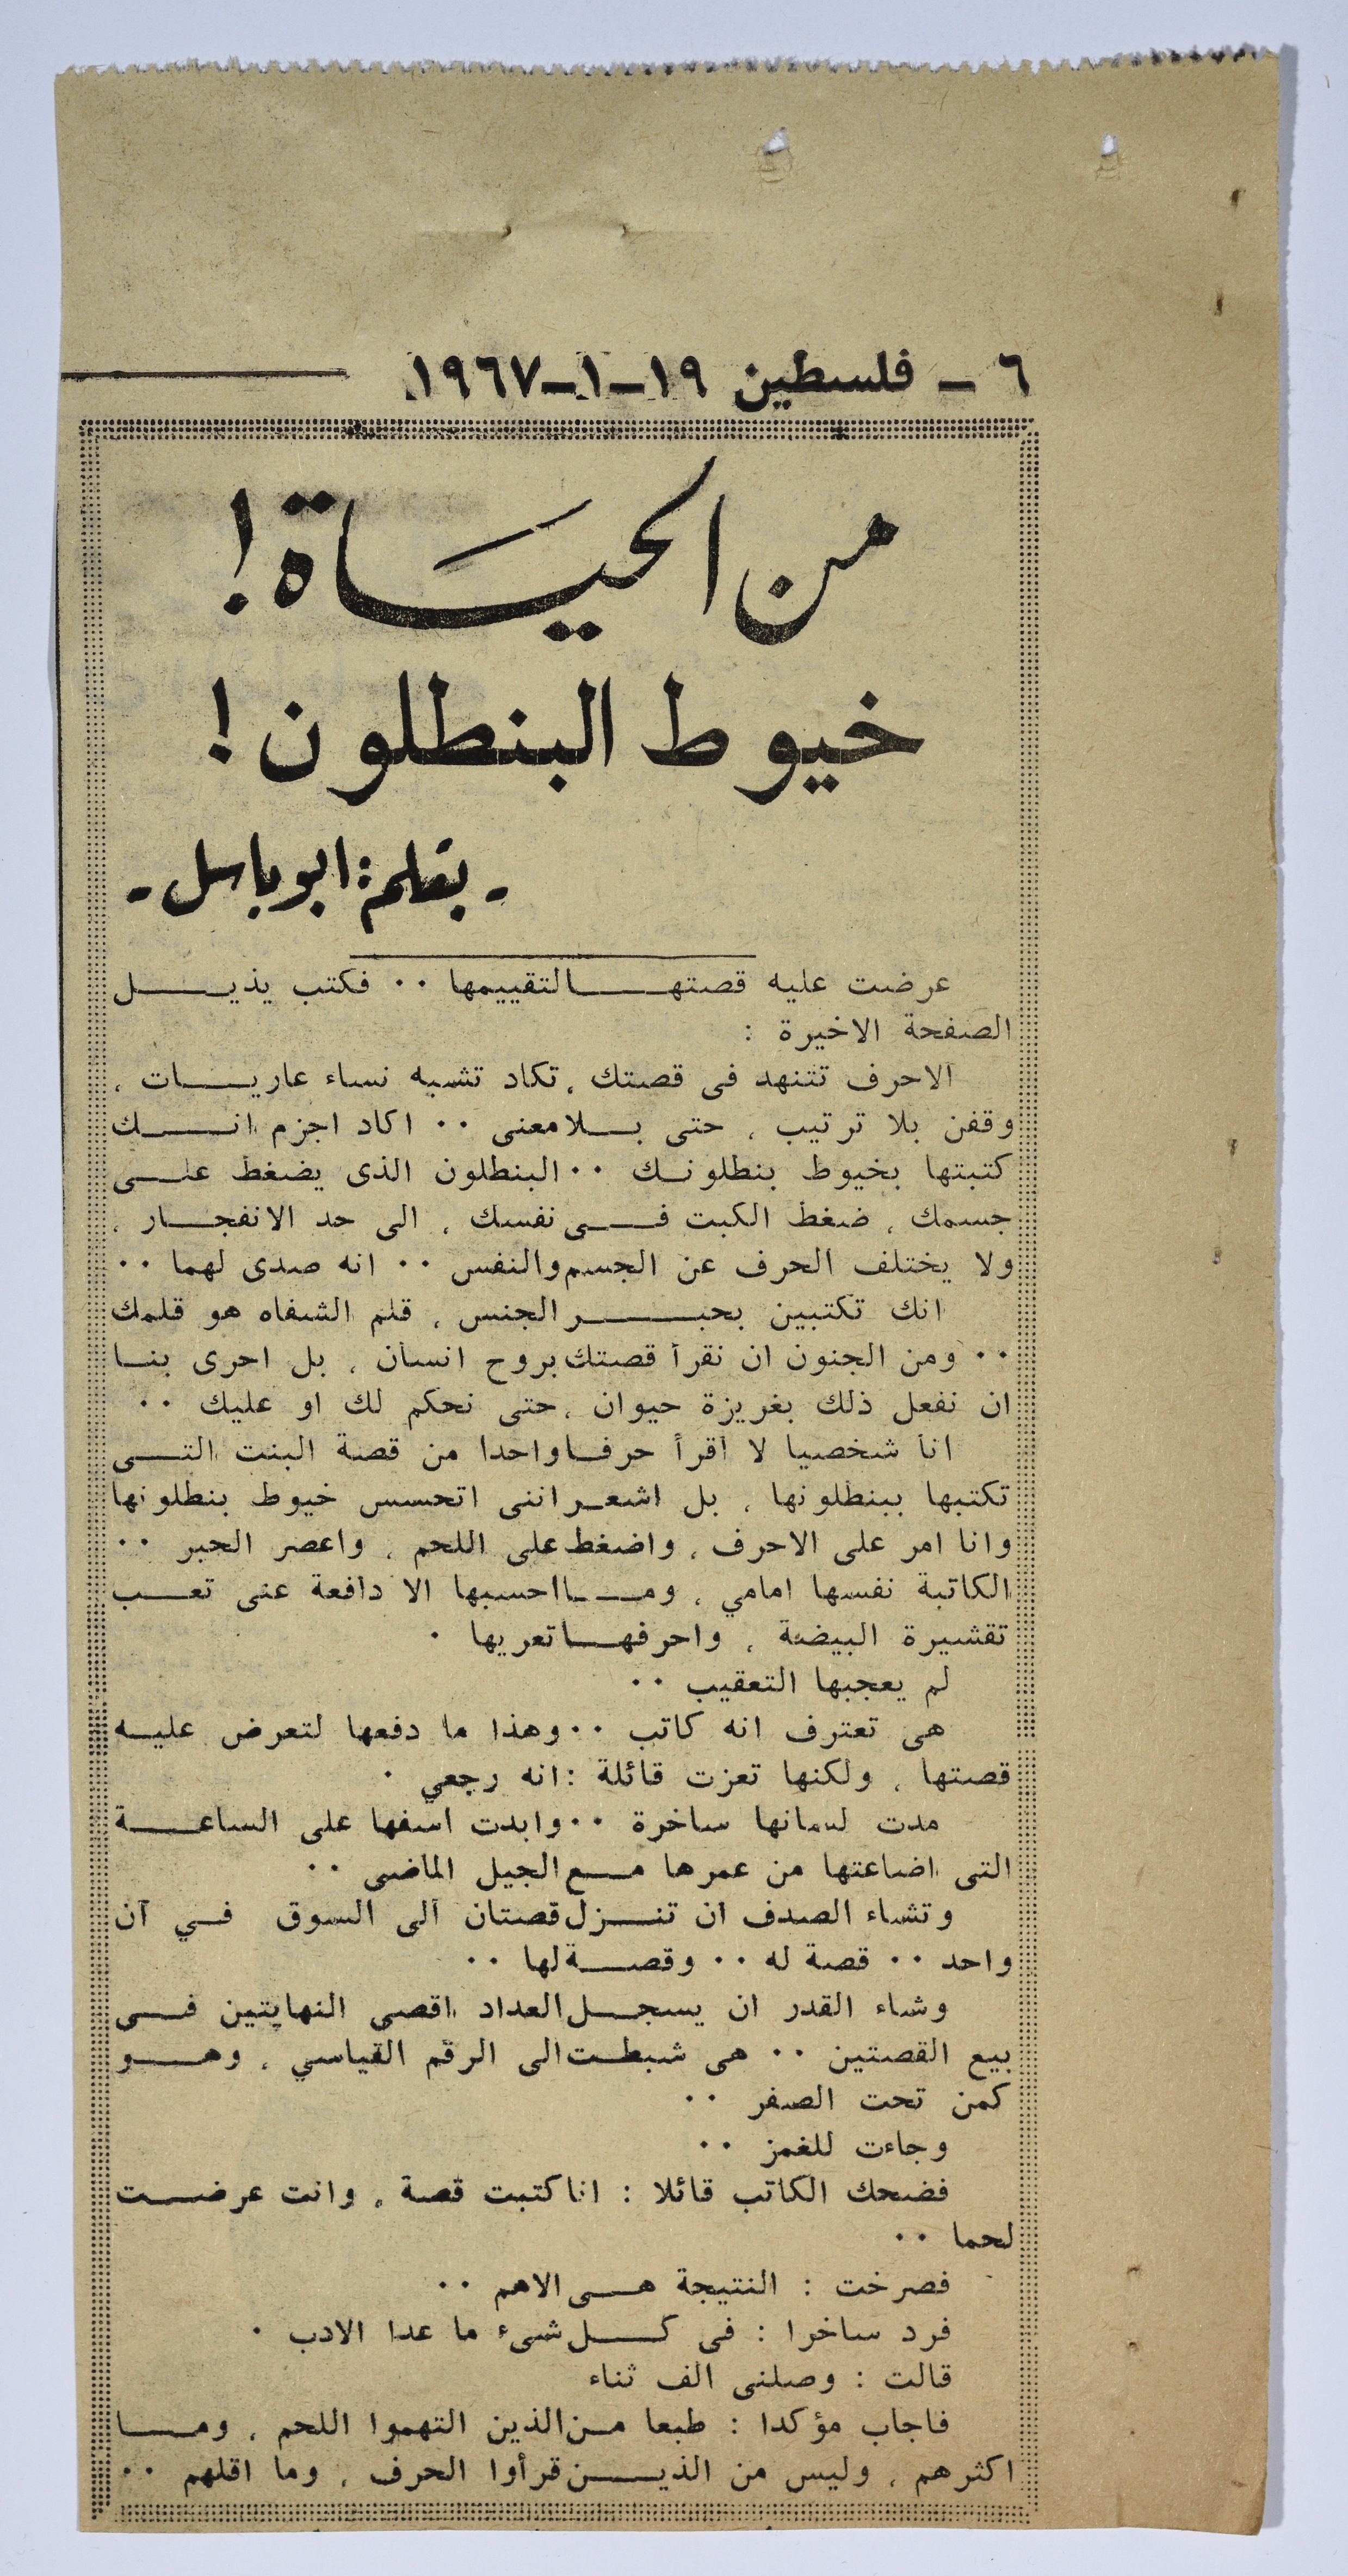 ٦ - فلسطين ١٩-١-١٩٦٧
من الحياة !
خيوط البنطلون !
- بقلم : ابو باسل -
عرضت عليه قصتها لتقييمها ٠٠ فكتب يذيل
الصفحة الاخيرة :
الاحرف تتنهد في قصتك ، تكاد تشبه نساء عاريات ،
وقفن بلا ترتيب ، حتى بلا معنى ٠٠ اكاد اجزم انك
كتبتها بخيوط بنطلونك ٠٠ البنطلون الذى يضغط على
جسمك ، ضغط الكبت في نفسك ، الى حد الانفجار ،
ولا يختلف الحرف عن الجسم والنفس ٠٠ انه صدى لهما ٠٠
انك تكتبين بحبر الجنس ، قلم الشفاه هو قلمك
٠٠ ومن الجنون ان نقرأ قصتك بروح انسان ، بل احرى بنا
ان نفعل ذلك بغريزة حيوان ، حتى نحكم لك او عليك ٠٠
انا شخصيا لا أقرأ حرفا واحدا من قصة البنت التي
تكتبها ببنطلونها ، بل اشعر انني اتحسس خيوط بنطلونها
وانا امر على الاحرف ، واضغط على اللحم ، واعصر الحبر ٠٠
الكاتبة نفسها امامي ، وما احسبها الا دافعة عني تعب
تقشيرة البيضة ، واحرفها تعريها ٠
لم يعجبها التعقيب ٠٠
هي تعترف انه كاتب ٠٠ وهذا ما دفعها لتعرض عليه
قصتها ، ولكنها تعزت قائلة : انه رجعي ٠
مدت لسانها ساخرة ٠٠ وابدت اسفها على الساعة
التي اضاعتها من عمرها مع الجيل الماضي ٠٠
وتشاء الصدف ان تنزل قصتان الى السوق في آن
واحد ٠٠ قصة له ٠٠ وقصة لها ٠٠
وشاء القدر ان يسجل العداد اقصى النهايتين في
بيع القصتين ٠٠ هي شبطت الى الرقم القياسي ، وهو
كمن تحت الصفر ٠٠
وجاءت للغمز ٠٠
فضحك الكاتب قائلا : انا كتبت قصة ، وانت عرضت
لحما ٠٠
فصرخت : النتيجة هي الاهم ٠٠
فرد ساخرا : في كل شيء ما عدا الادب ٠
قالت : وصلني الف ثناء
فاجاب مؤكدا : طبعا من الذين التهموا اللحم ، وما
اكثرهم ، وليس من الذين قرأوا الحرف ، وما اقلهم ٠٠